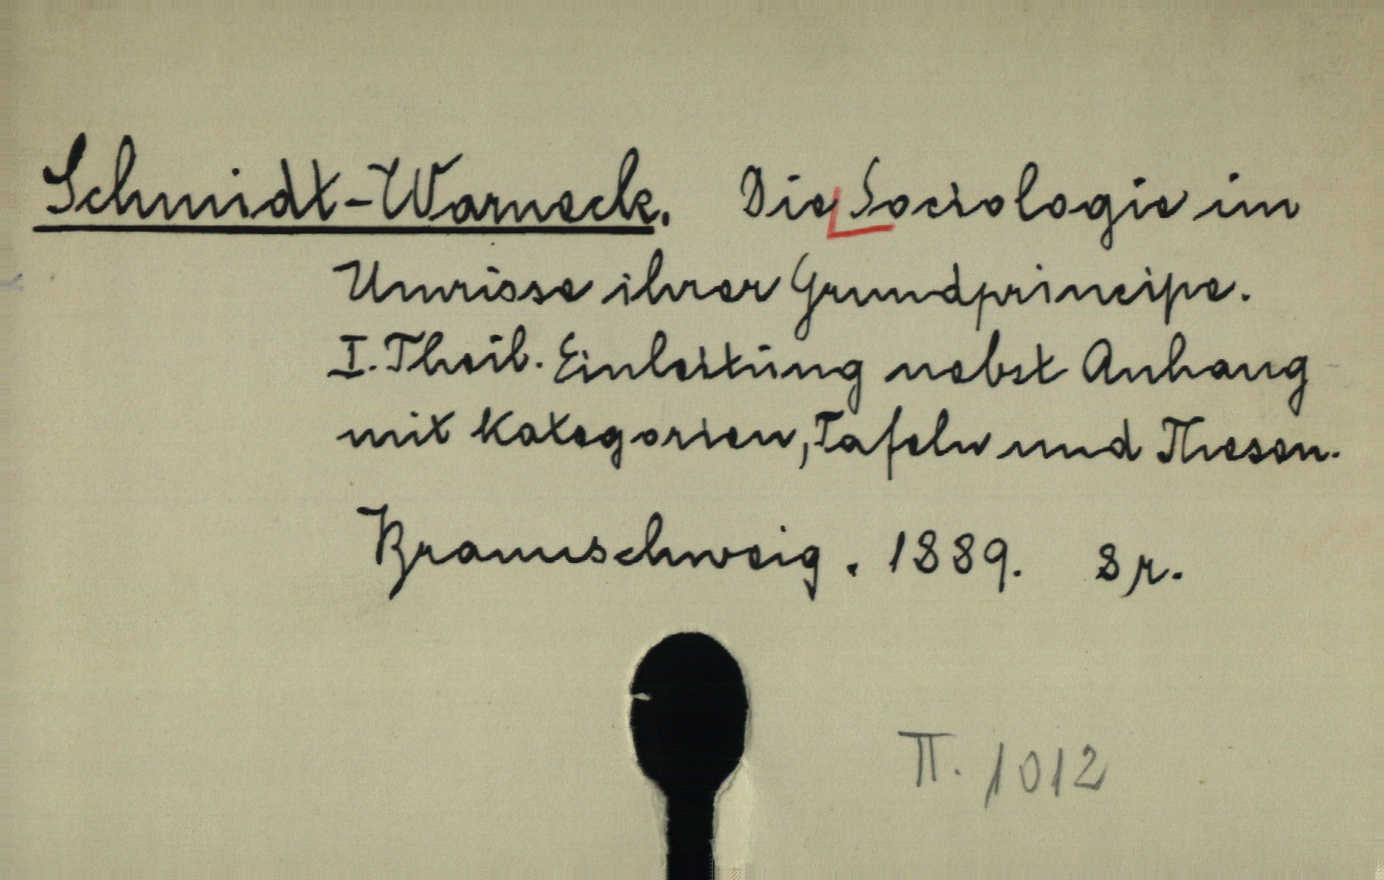 Schmidt-Warneck. Die Sociologie im
Umrisse ihrer Grundprincipe.
I. Theil. Einleitung nebst Anhang
mit Kategorien, Tafeln und Thesen.
Braunschweig. 1889. 8r.
II. 1012